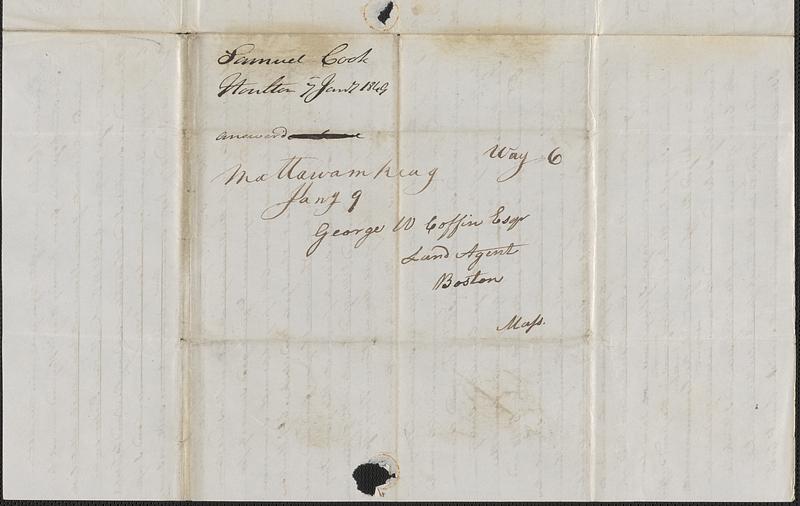 Samuel Cook
Houlton 7 Jany 1849
answerd
Way 6
Mattawamkeag
Jany 9
George W Coffin Esqr
Land Agent
Boston
Mass.